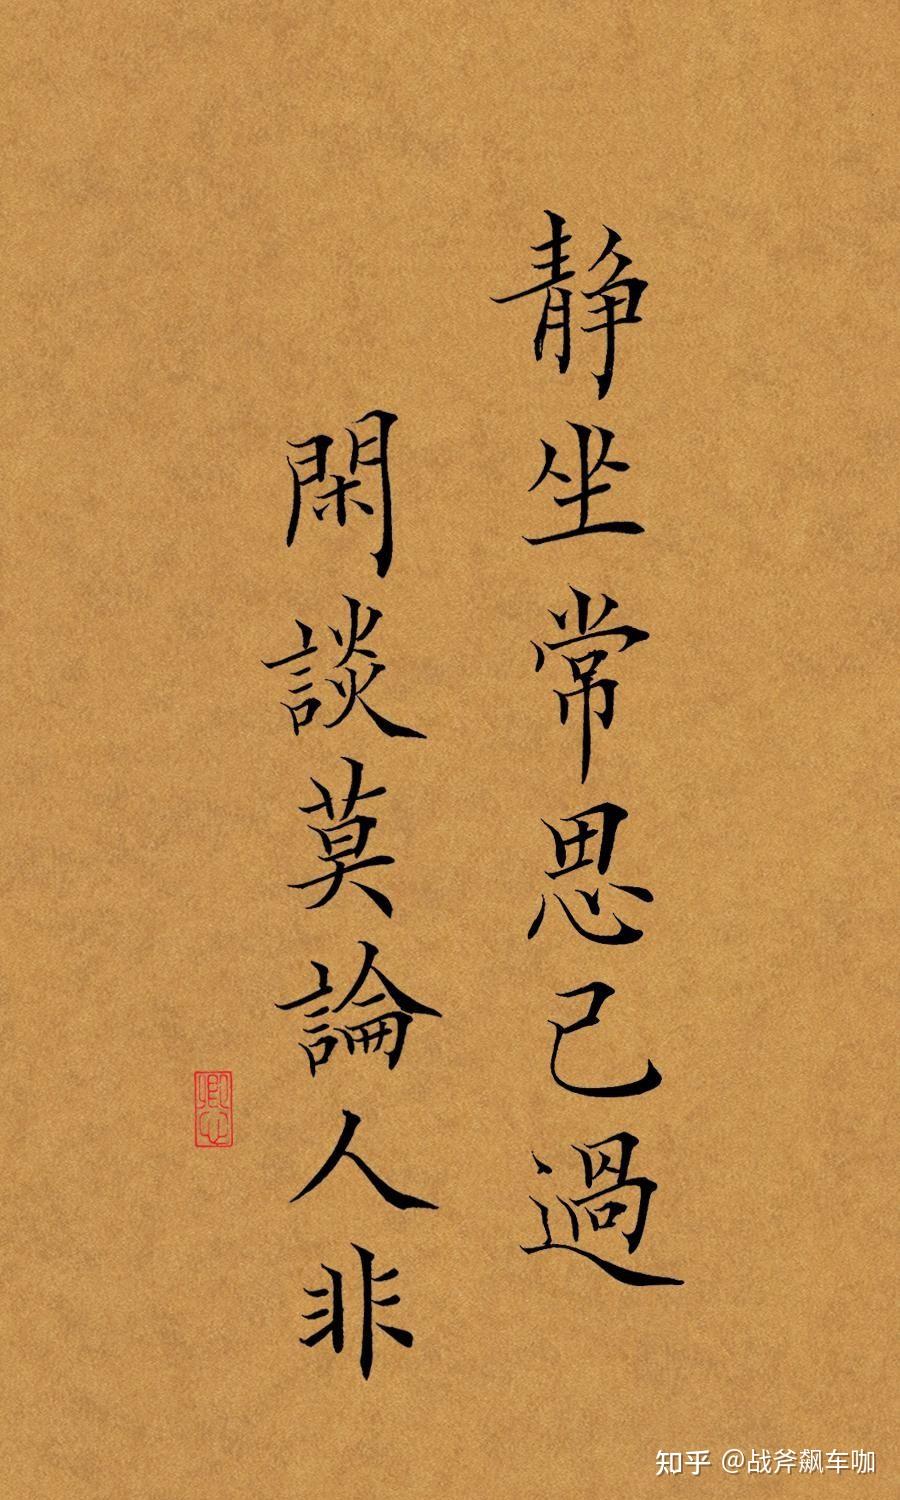 静坐常思己過
閑談莫論人非
知乎 @战斧飙车咖